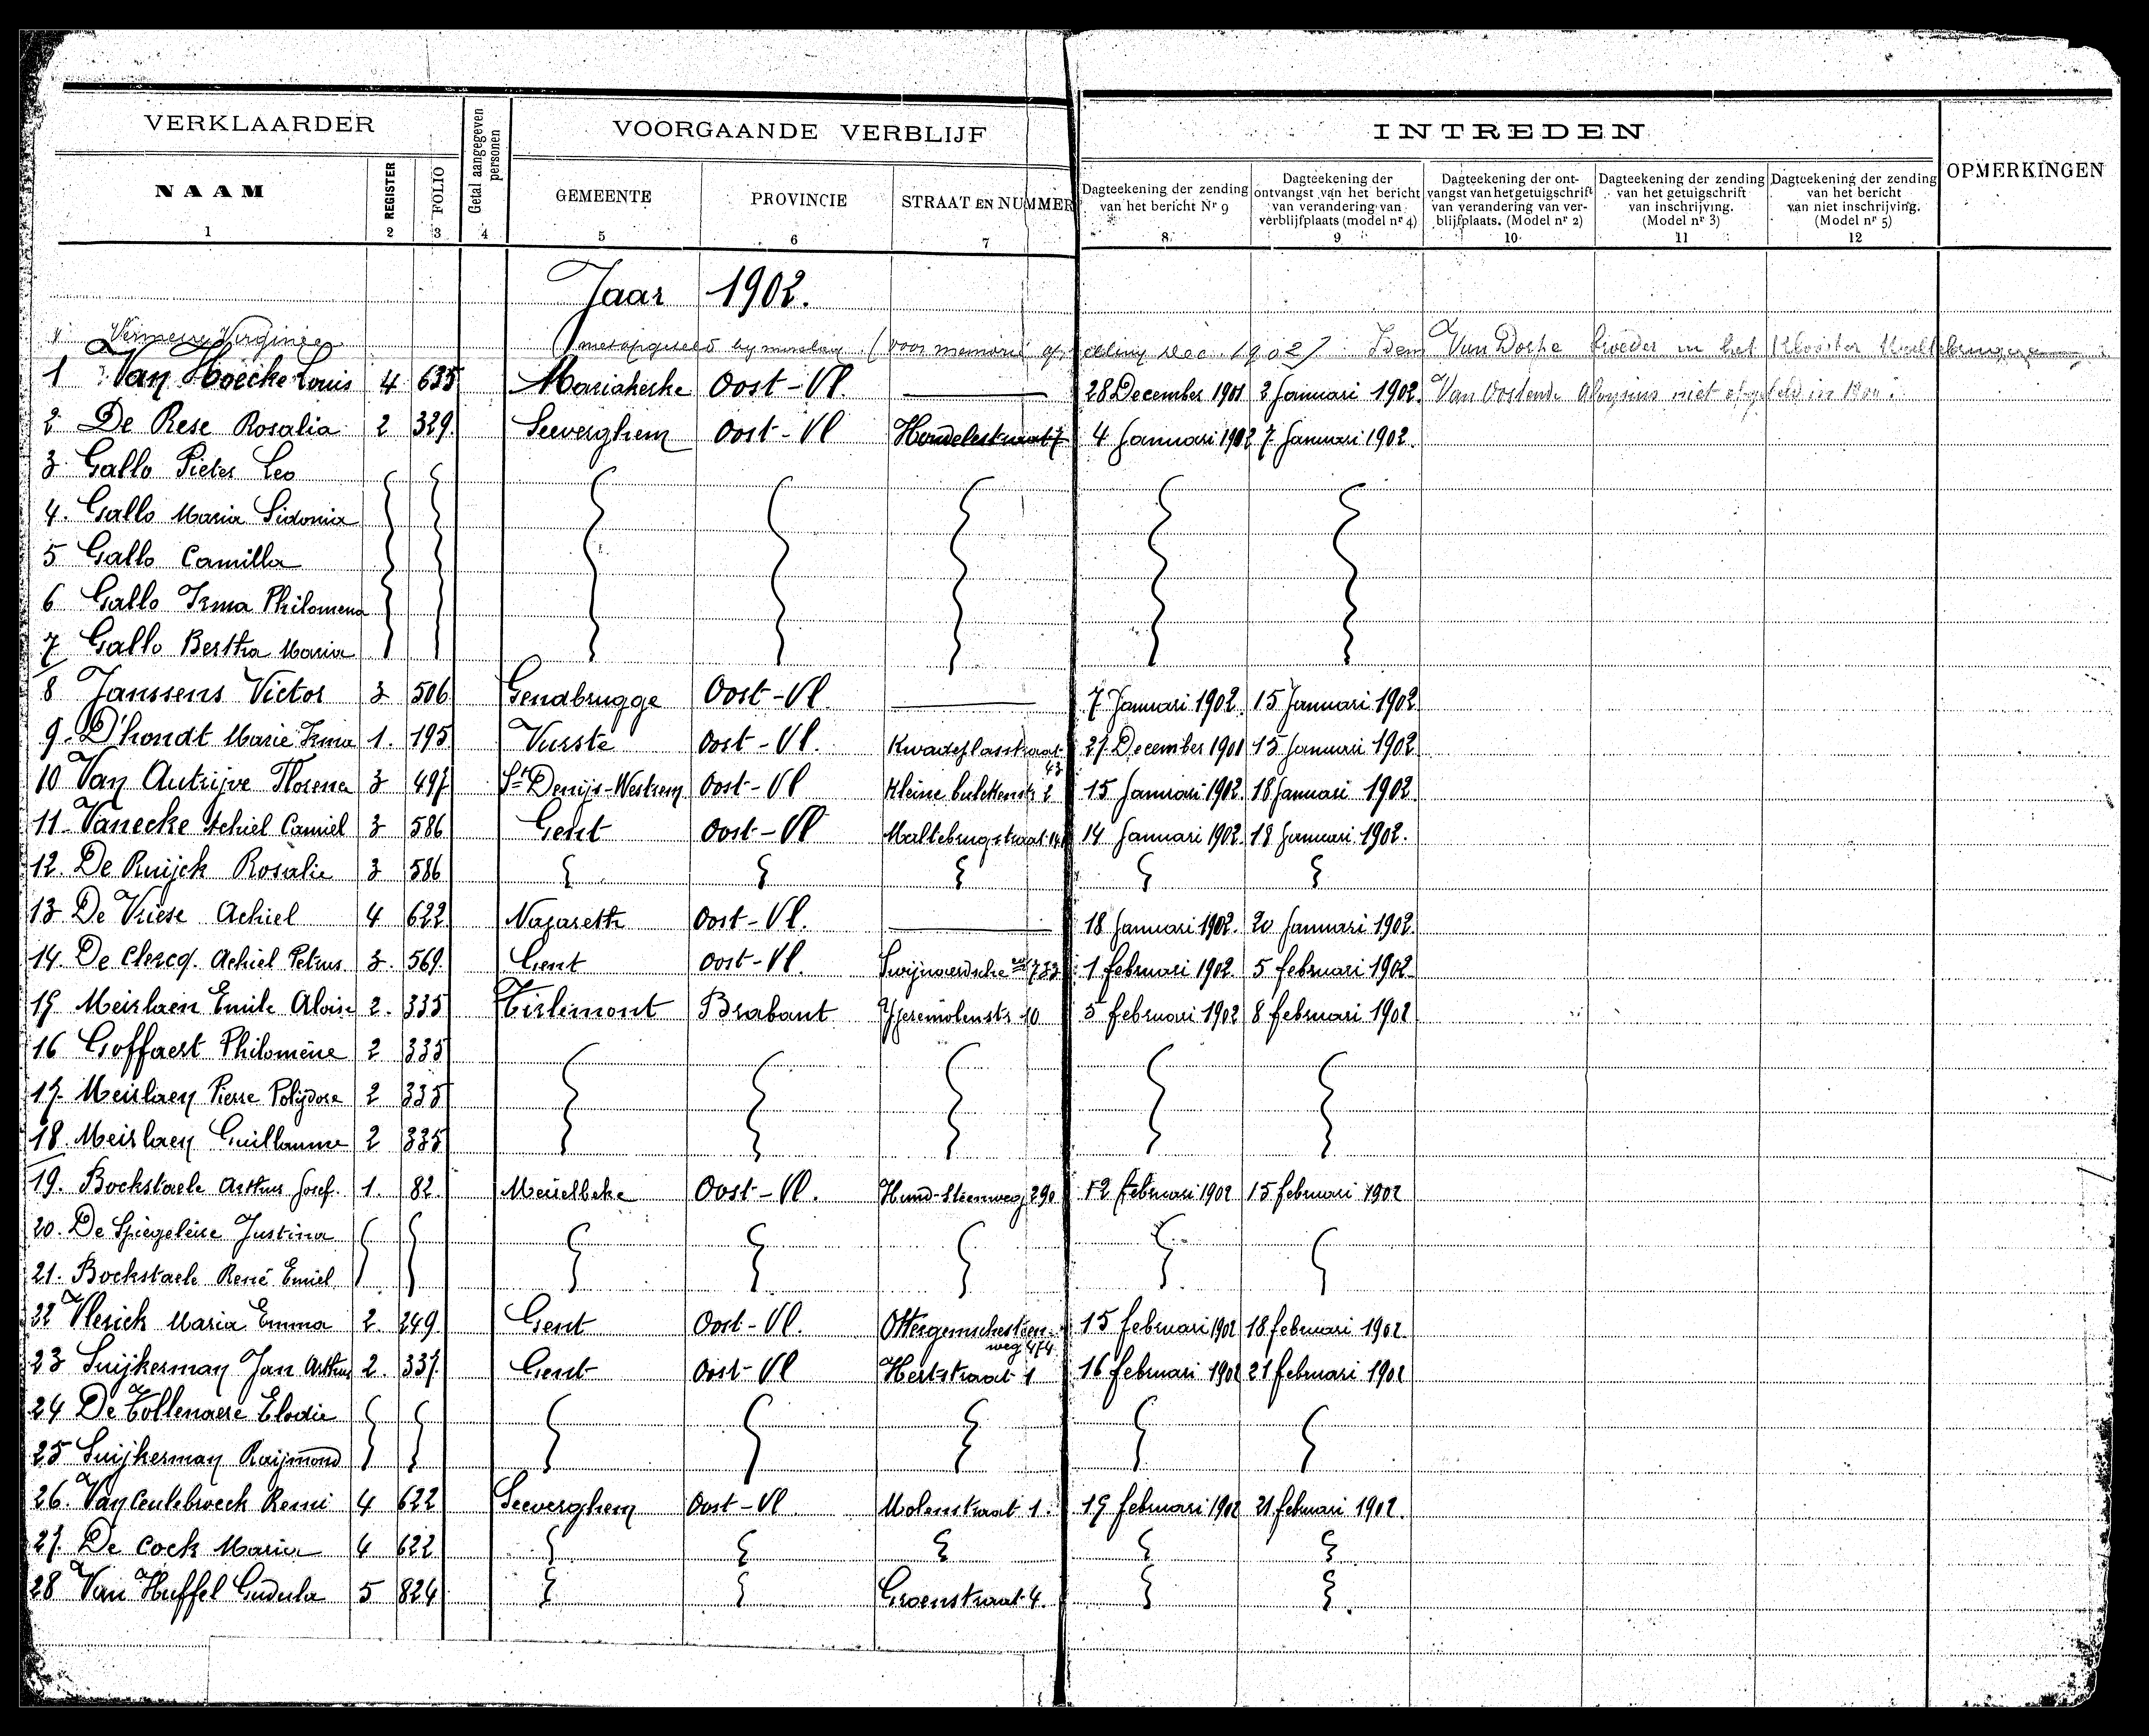 VERKLAARDER
Getal aangegeven personen
VOORGAANDE VERBLIJF
INTREDEN
OPMERKINGEN
NAAM REGISTER FOLIO GEMEENTE PROVINCIE STRAAT EN NUMMER
Dagteekening der zending van het bericht Nr 9
Dagteekening der ontvangst van het bericht van verandering van verblijfplaats (model nr 4)
Dagteekening der ontvangst van het getuigschrift van verandering van verblijfplaats. (Model nr 2)
Dagteekening der zending van het getuigschrift van inschrijving. (Model nr 3)
Dagteekening der zending van het bericht van niet inschrijving. (Model nr 5)
1 2 3 4 5 6 7 8 9 10 11 12
Jaar 1902.
Virginie (voor memorie Dec. 1902) Idem Van in het Klooster
1 Van Hoecke Louis 4 635 Mariakerke Oost-Vl. 28 December 1901 2 Januari 1902. Van Oostende Aloysius niet in
2 De Rese Rosalia 2 329. Seeverghem Oost-Vl 4 Januari 1902 7 Januari 1902.
3 Gallo Pieter Leo
4. Gallo Maria Sidonia
5 Gallo Camilla
6 Gallo Irma Philomena
7 Gallo Bertha Maria
8 Janssens Victor 3 506 Gendbrugge Oost-Vl. 7 Januari 1902. 15 Januari 1902
9. D'hondt Marie Irma 1. 195 Vurste Oost-Vl. 43 27 December 1901 15 Januari 1902
10 Van Autrijve Florena 3 497 St Denijs-Westrem Oost-Vl Kleine 2 15 Januari 1902. 18 Januari 1902
11. Vanecke Achiel Camiel 3 586 Gent Oost-Vl Maltebrugstraat 14 Januari 1902. 18 Januari 1902.
12. De Ruijck Rosalie 3 586
13 De Vriese Achiel 4 622 Nazareth Oost-Vl. 18 Januari 1902. 20 Januari 1902.
14. De Clercq. Achiel Petrus 3. 569. Gent Oost-Vl. 733 1 februari 1902. 5 februari 1902
15 Meirlaen Emile Aloise 2. 335 Tirlemont Brabant 10 5 februari 1902 8 februari 1902
16 Goffaert Philomène 2 335
17. Meirlaen Pierre Polydore 2 335
18. Meirlaen Guillaume 2 335
19. Bockstaele Arthur Josef. 1. 82. Meirelbeke Oost-Vl. Hund-Steenweg 290 12 februari 1902 15 februari 1902
20. De Spiegeleire Justina
21. Bockstaele René Emiel
22 Vlerick Maria Emma 2 249 Gent Oost-Vl. Ottergemschesteenweg 474 15 februari 1902 18 februari 1902
23 Suijkerman Jan Arthur 2. 337. Gent Oost-Vl Hertstraat 1 16 februari 1902 21 februari 1902
24 De Tollenaere Elodie
25 Suijkerman Raijmond
26. Van Ceulebroeck Remi 4 622 Seeverghem Oost-Vl. Molenstraat 1. 19 februari 1902 21 februari 1902.
27. De Cock Maria 4 622
28 Van Huffel Gudula 5 824 Groenstraat 4.